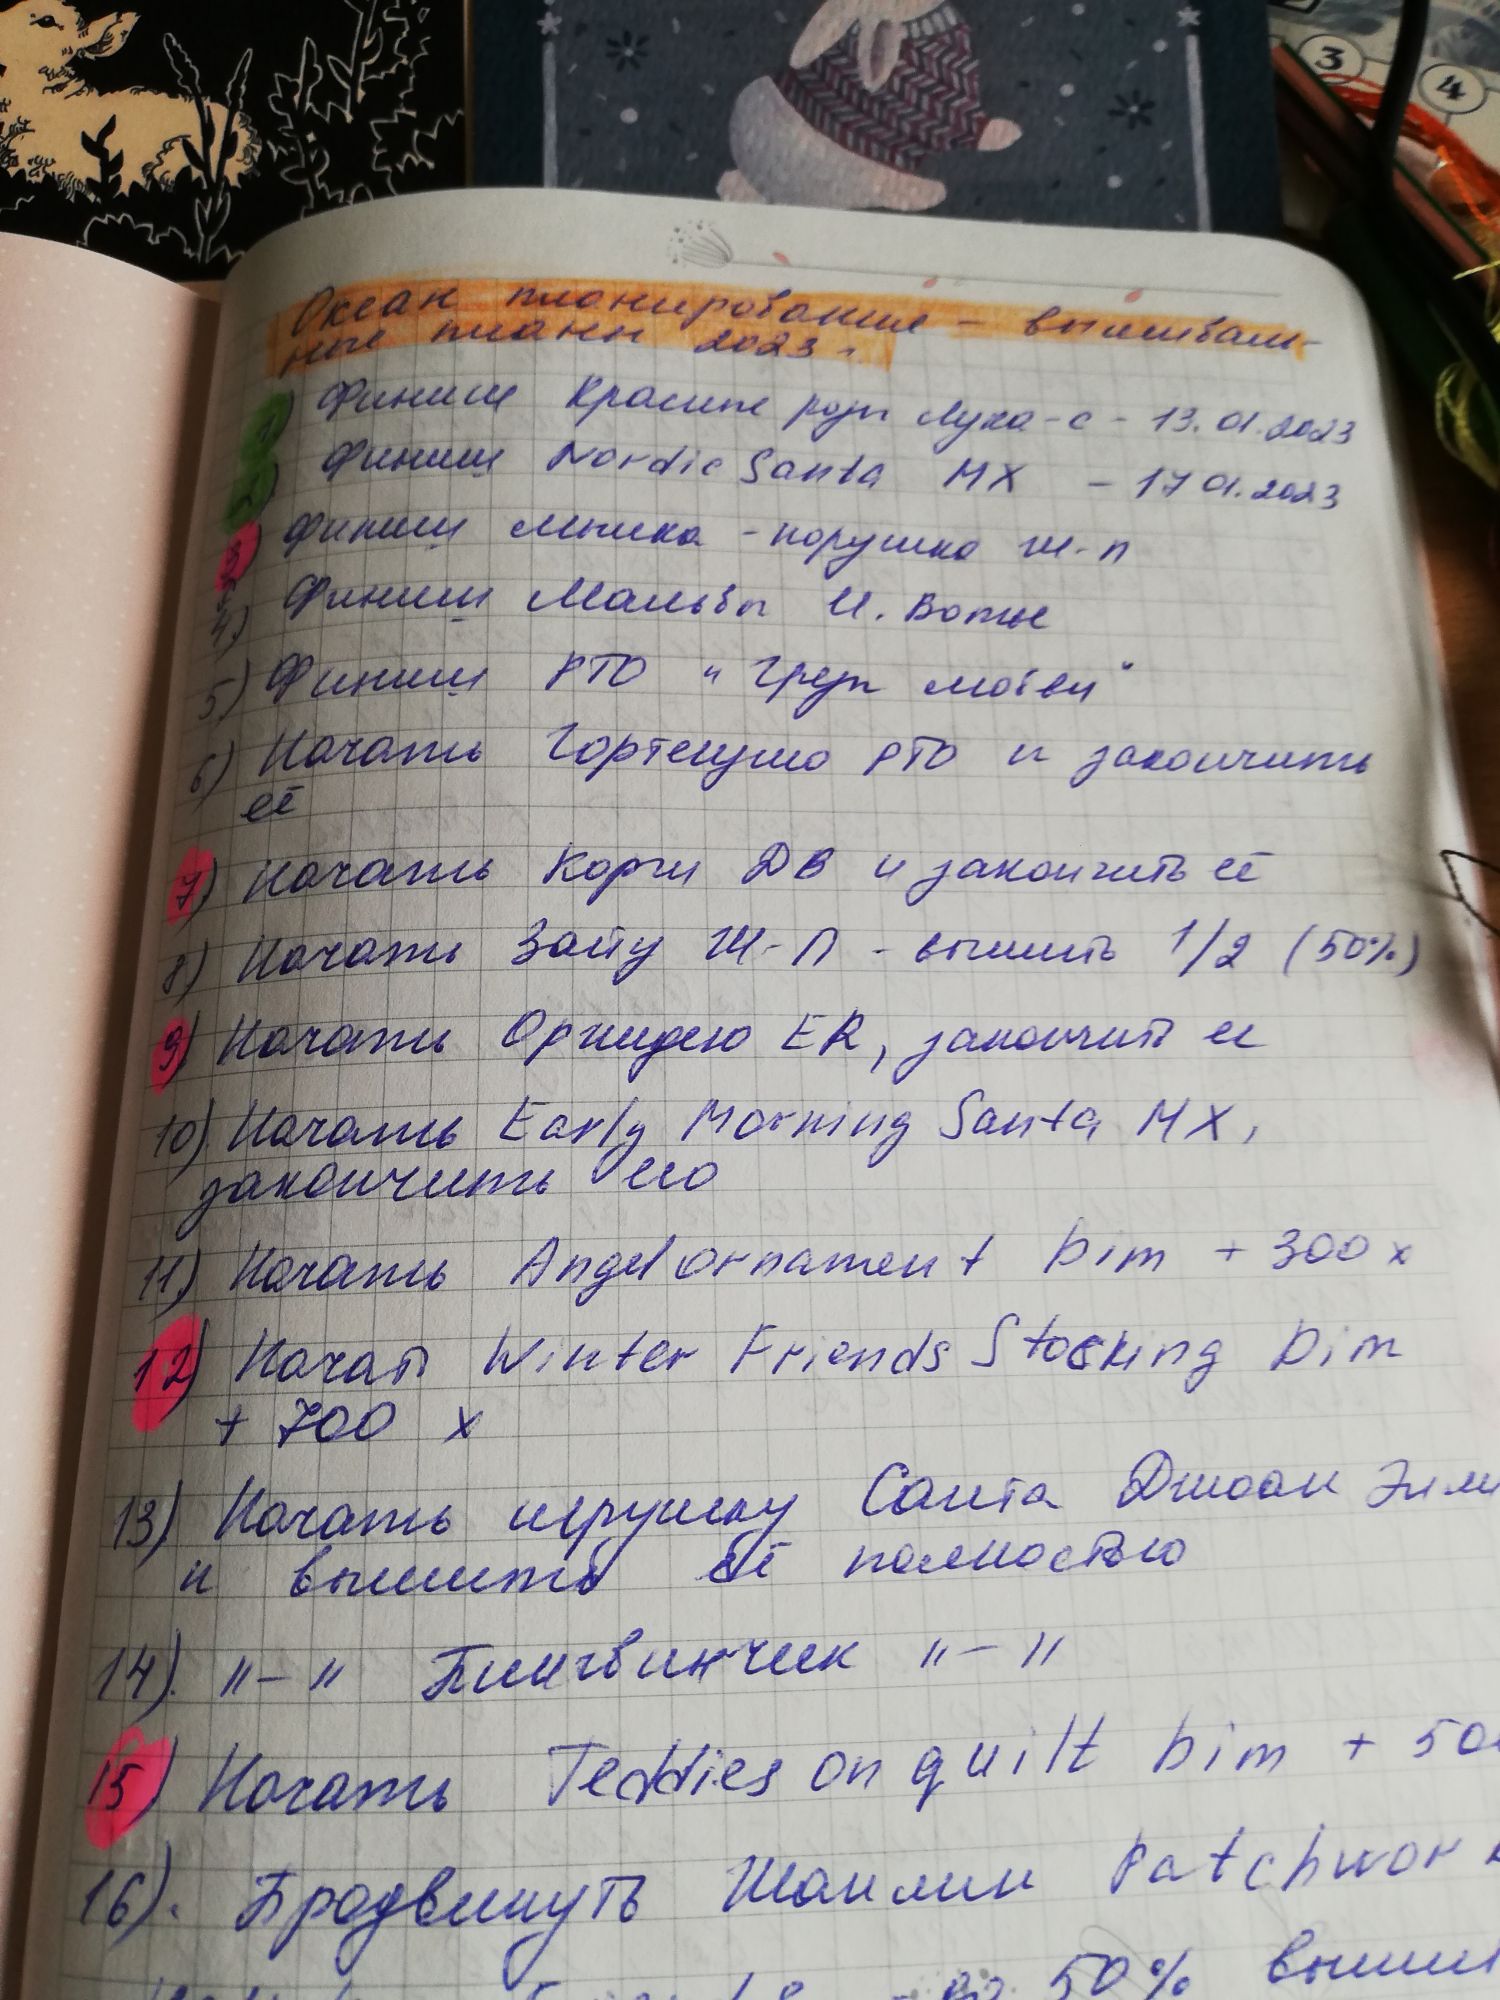 3
4
Океан планирования - вышиваль-
ные планы 2023 г.
1) Финиш Красные розы Лука-с - 13.01.2023
2) Финиш Nordic Santa МХ - 17 01.2023
3) Финиш Мышка - норушка Ж-п
4) Финиш Мальвы И. Вотье
5) Финиш РТО "Грёзы любви"
6) Начать Гортензию РТО и закончить
её
7) Начать Корги ДВ и закончить её
8) Начать Зайку Ж-П - вышить 1/2 (50%)
9) Начать Орхидею ER, закончить ее
10) Начать Early Morning Santa МХ,
закончить его
11) Начать Angel ornament Dim + 300 х
12) Начать Winter Friends Stocking Dim
+ 700 х
13) Начать игрушку Санта Джоан Элли
и вышить её полностью
14) "-" Пингвинчик "-"
15) Начать Teddies on quilt Dim + 50
16). Продвинуть Patchwork
50% вышив